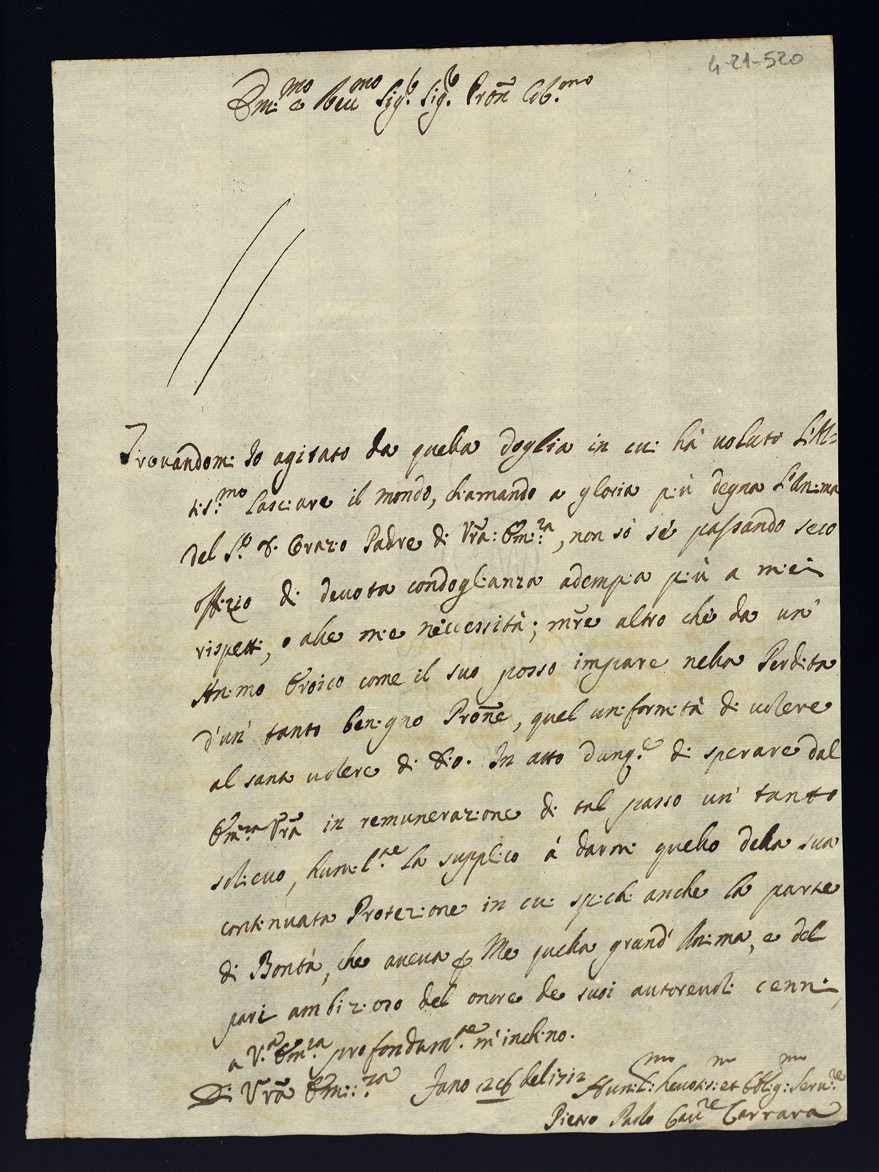 4-21-520
Em:mo e Reu:mo Sig.r Sig.r Pron Col.mo
Trouandomi Io agitato da quella doglia in cui hà uoluto l'Al=
tis.mo lasciare il mondo, chiamando a gloria più degna l'Anima
del S.r Orazio Padre di Vra: Em:za, non sò sè passando seco
offizio di deuota condoglianza adempia più a miei
rispetti, o alle mie neccessità; mre altro chè da un'
Animo Eroico come il suo posso imparare nella Perdita
d'un' tanto benigno Prone, quel uniformità di uolere
al santo uolere di Dio. In atto dunq.e di sperare dal
Em.za Vra in remunerazione di tal passo un' tanto
solieuo, humil.te la supplico à darmi quello della sua
continuata Protezione in cui spicchi anche la parte
di Bontà, che aueua p Me quella grand' Anima, e del
pari ambizioso del onore de suoi autoreuoli cenni,
a V.ra Em.za profondam.te m'inchino.
Di Vra Em::za Fano del 1712 Humil: Deuotis: et Oblig: Seru.re
Pietro Paolo Cau.re Carrara